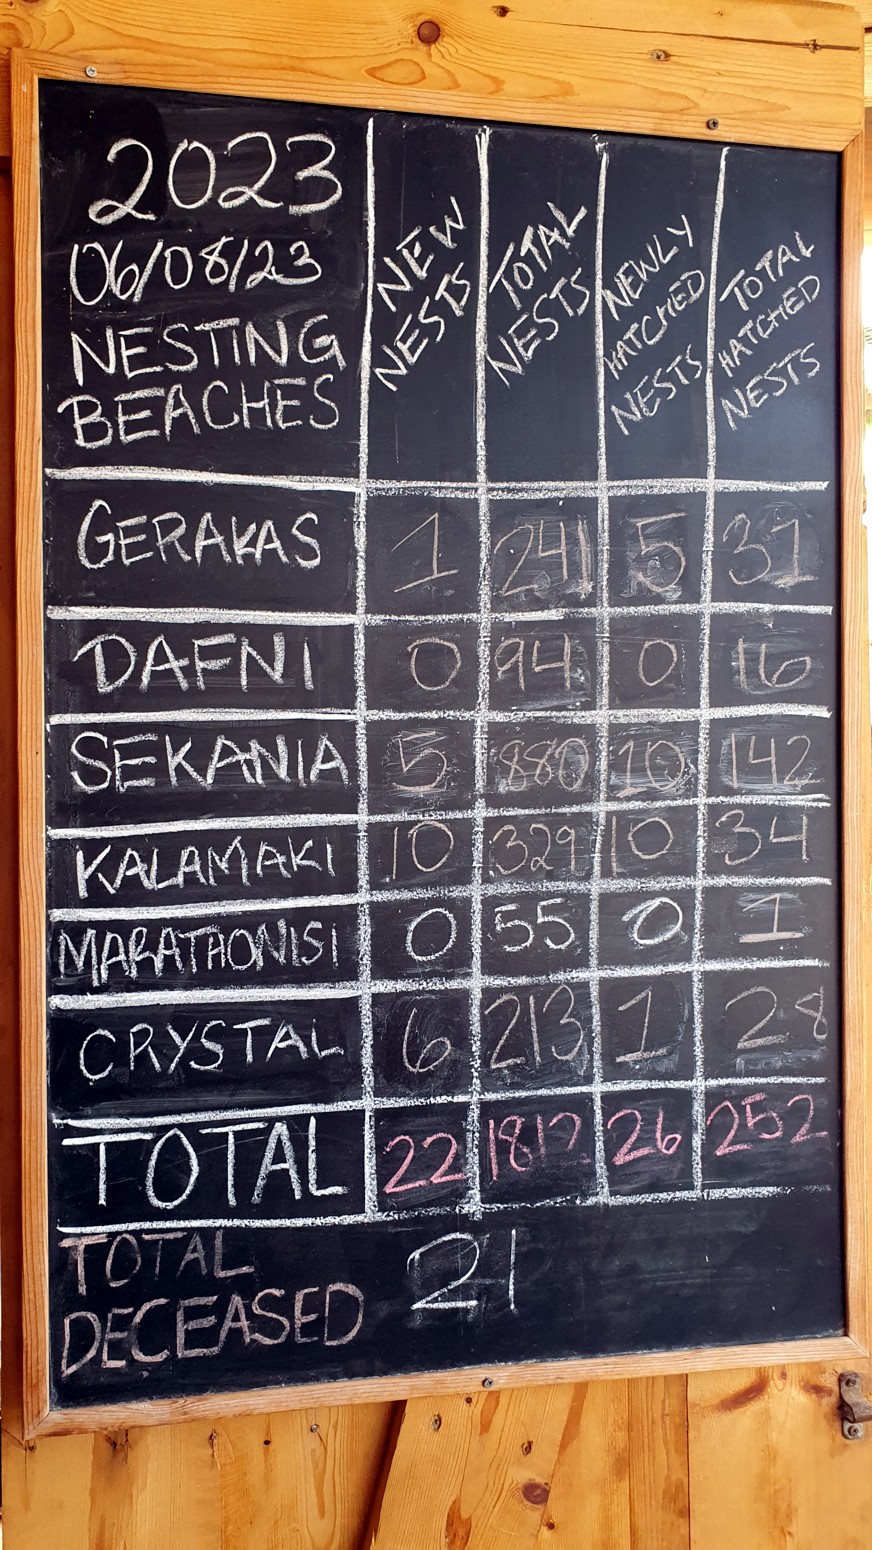 2023
06/08/23
NESTING
BEACHES
NEW
NESTS
TOTAL
NESTS
NEWLY
HATCHED
NESTS
TOTAL
HATCHED
NESTS
GERAKAS 1 241 5 31
DAFNI 0 94 0 16
SEKANIA 5 880 10 142
KALAMAKI 10 329 10 34
MARATHONISI 0 55 0 1
CRYSTAL 6 213 1 28
TOTAL 22 1812 26 252
TOTAL
DECEASED 21